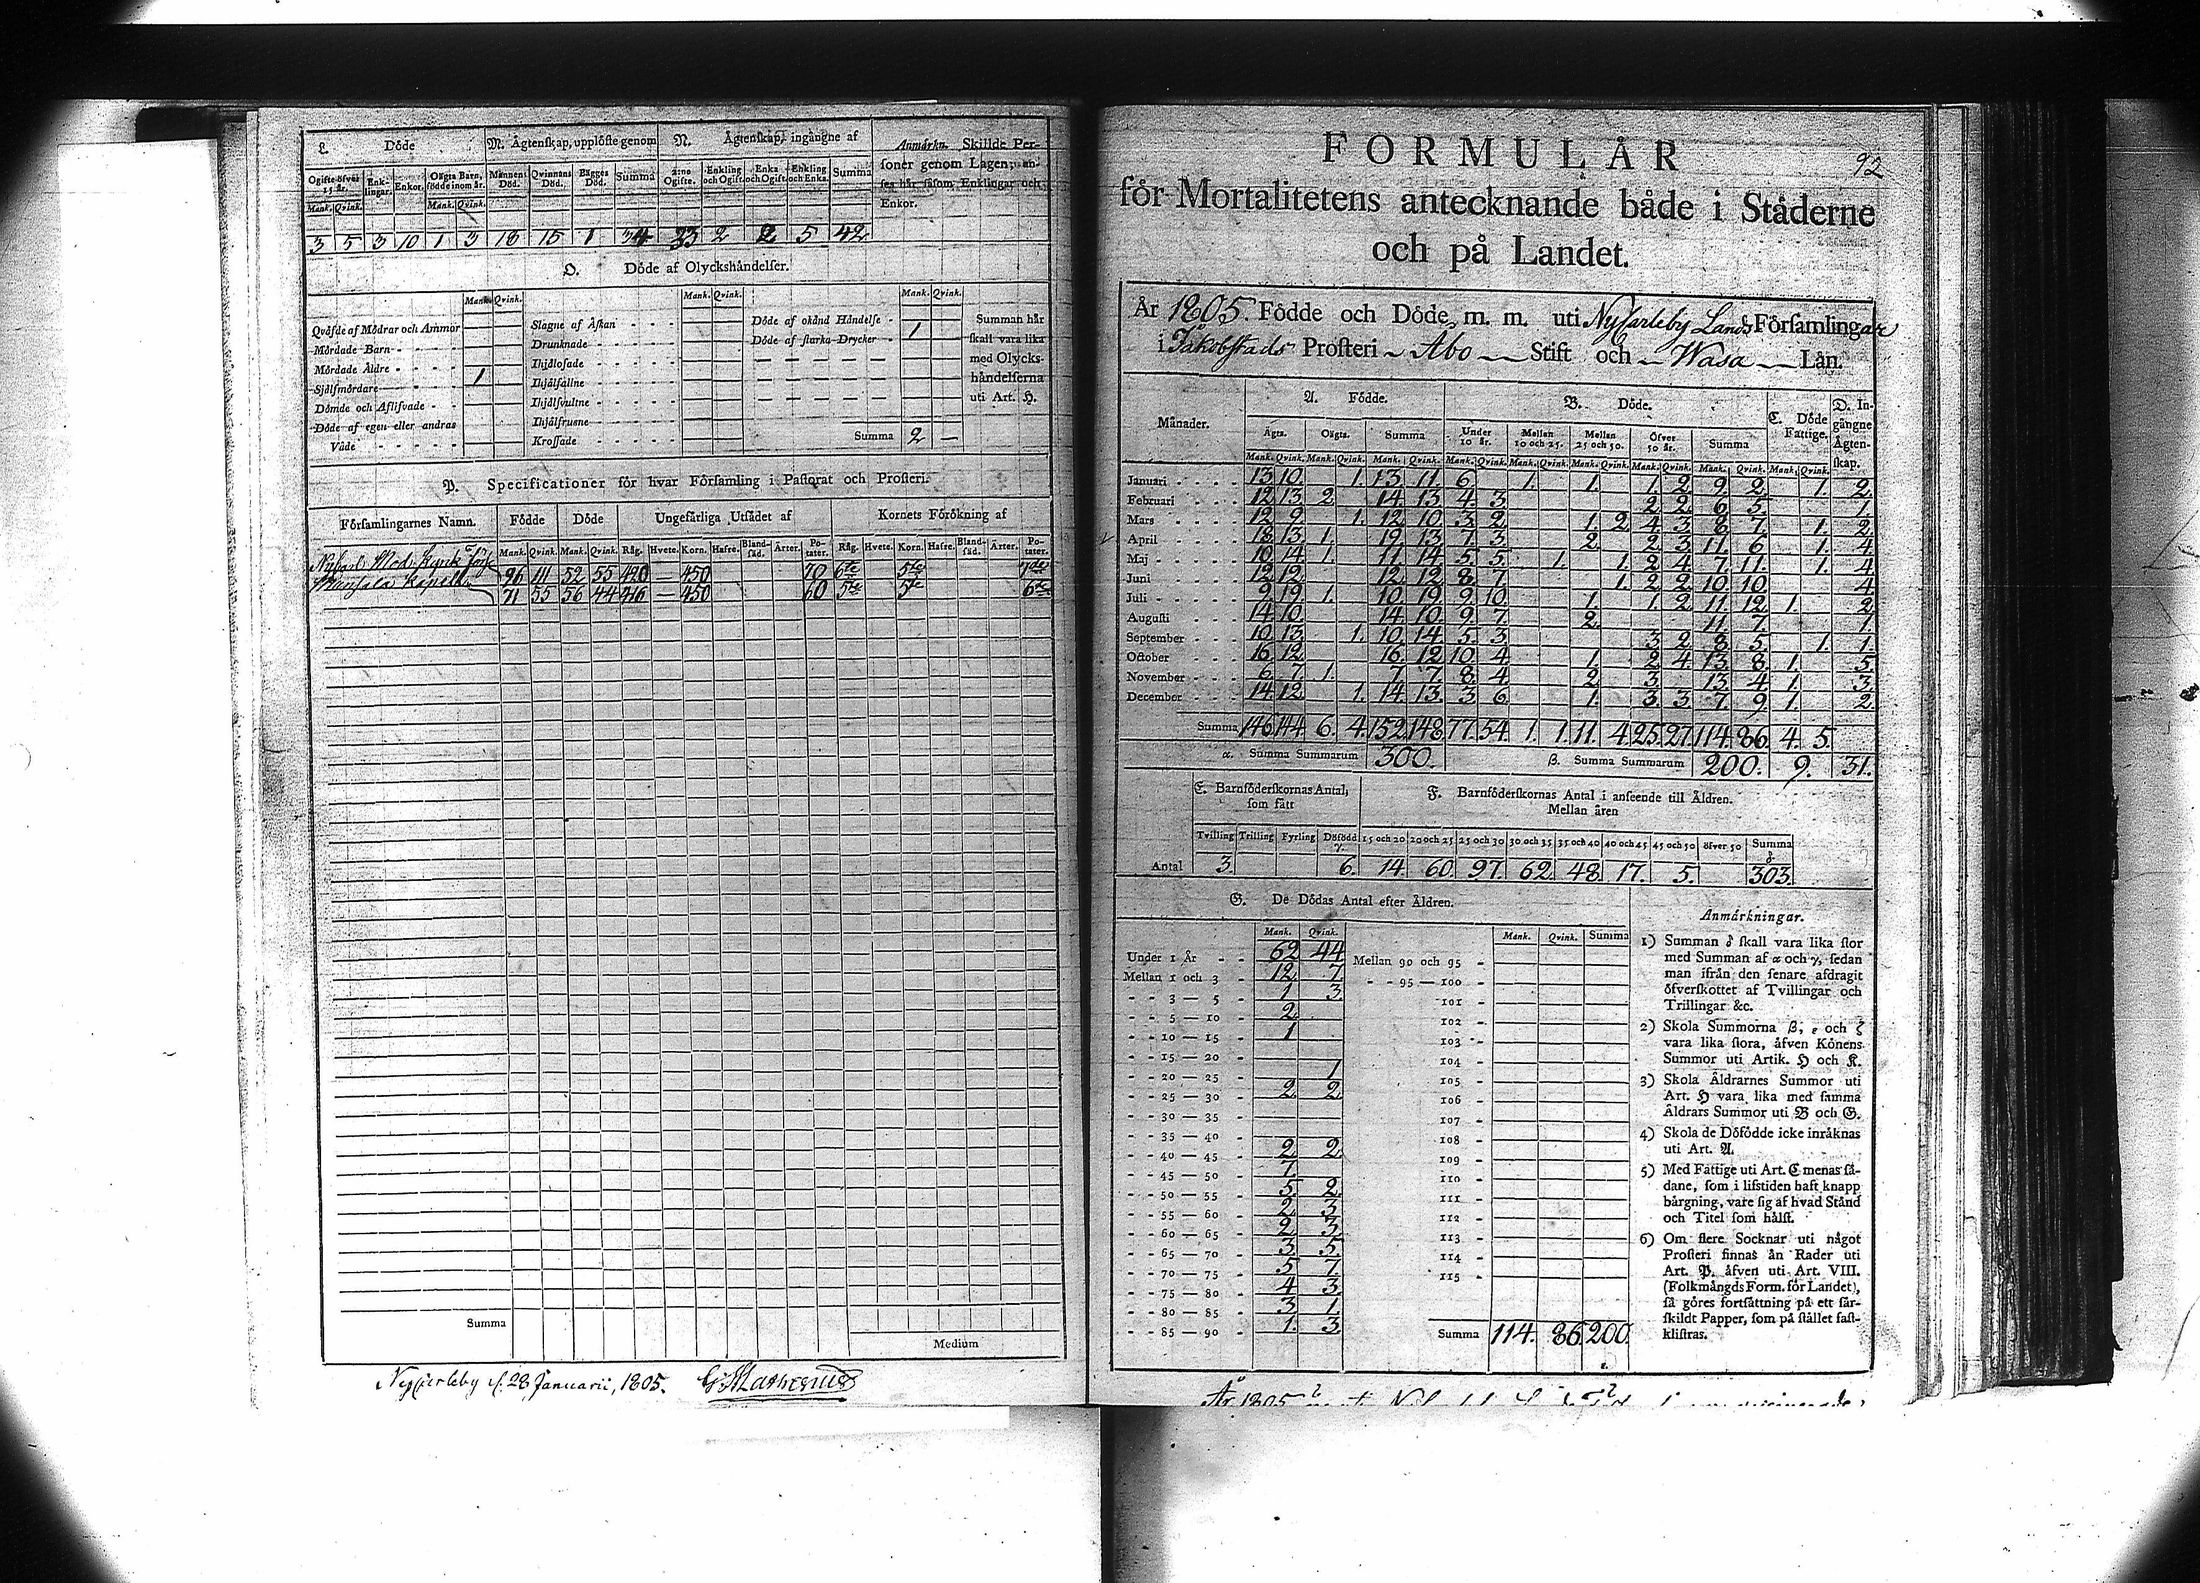 L. Döde
M. Ägtenskap, upplöste genom
N. Ägtenskap, ingångne af
Anmärkn. Skillde Per-
soner genom Lagen, an-
ses här såsom Enklingar och
Enkor.
Ogifte öfver 15 år. Enk-lingar. Enkor. Oägta Barn, födde inom år. Mannens Död. Qvinnans Död. Bägges Död. Summa 2:ne Ogifte. Enkling och Ogift. Enka och Ogift. Enkling och Enka. Summa
Mank. Qvink. Mank. Qvink.
3 5 3 10 1 3 18 15 1 34 33 2 2 5 42
O. Döde af Olyckshändelser.
Mank. Qvink. Mank. Qvink. Mank. Qvink.
Qväfde af Mödrar och Ammor
Mördade Barn
Mördade Äldre
Sjelfmördare 1
Dömde och Aflifvade
Döde af egen eller andras
Våde
Slagne af Åskan
Drunknade
Ihjälfallne
Ihjälfrusne
Krossade
Döde af okänd Händelse 1
Döde af starka Drycker
Summa 2 —
Summan här
skall vara lika
med Olycks-
händelserna
uti Art. H.
P. Specificationer för hvar Församling i Pastorat och Prosteri.
Församlingarnes Namn. Födde Döde Ungefärliga Utsädet af Kornets Förökning af
Mank. Qvink. Mank. Qvink. Råg. Hvete. Korn. Hafre. Bland-säd. Ärter. Po-tater. Råg. Hvete. Korn. Hafre. Bland-säd. Ärter. Po-tater.
96 111 52 55 420 — 450 70 6te 5te 7de
Munsala Kapell 71 55 56 44 246 — 450 60 5te 5te 6te
Summa
Medium
Nycarleby d. 28 Januarii, 1805.
92
FORMULÄR
för Mortalitetens antecknande både i Städerne
och på Landet.
År 1805. Födde och Döde, m. m. uti Nycarleby Lands Församlingar
i Jakobstads Prosteri Åbo Stift och Wasa Län.
Månader. A. Födde. B. Döde. C. Döde Fattige. D. In-gångne Ägten-skap.
Ägta. Oägta. Summa Under 10 år. Mellan 10 och 25. Mellan 25 och 50. Öfver 50 år. Summa
Mank. Qvink. Mank. Qvink. Mank. Qvink. Mank. Qvink. Mank. Qvink. Mank. Qvink. Mank. Qvink. Mank. Qvink. Mank. Qvink.
Januari 13. 10. 1. 13. 11. 6. 1. 1. 1. 2. 9. 2. 1. 2.
Februari 12. 13. 2. 14. 13. 4. 3. 2. 2. 6. 5. 1.
Mars 12. 9. 1. 12. 10. 3. 2. 1. 2. 4. 3. 8. 7. 1. 2.
April 18. 13. 1. 19. 13. 7. 3. 2. 2. 3. 11. 6. 1. 4.
Maj 10. 14. 1. 11. 14. 5. 5. 1. 1. 2. 4. 7. 11. 1. 4.
Juni 12. 12. 12. 12. 8. 7. 1. 2. 2. 10. 10. 4.
Juli 9. 19. 1. 10. 19. 9. 10. 1. 1. 2. 11. 12. 1. 2.
Augusti 14. 10. 14. 10. 9. 7. 2. 11. 7. 1.
September 10. 13. 1. 10. 14. 5. 3. 3. 2. 8. 5. 1. 1.
October 16. 12. 16. 12. 10. 4. 1. 2. 4. 13. 8. 1. 5.
November 6. 7. 1. 7. 7. 8. 4. 2. 3. 13. 4. 1. 3.
December 14. 12. 1. 14. 13. 3. 6. 1. 3. 3. 7. 9. 1. 2.
Summa 146. 144. 6. 4. 152. 148. 77. 54. 1. 1. 11. 4. 25. 27. 114. 86. 4. 5.
α. Summa Summarum 300. β. Summa Summarum 200. 9. 31.
E. Barnföderskornas Antal, som fått
F. Barnföderskornas Antal i anseende till Åldren.
Mellan åren
Tvilling Trilling Fyrling Döfödd γ. 15 och 20 20 och 25 25 och 30 30 och 35 35 och 40 40 och 45 45 och 50 öfver 50 Summa δ
Antal 3. 6. 14. 60. 97. 62. 48. 17. 5. 303.
G. De Dödas Antal efter Åldren.
Mank. Qvink. Mank. Qvink. Summa
Under 1 År 62 44
Mellan 1 och 3 12. 7.
3 — 5 1 3.
5 — 10 2.
10 — 15 1
15 — 20
20 — 25 1
25 — 30 2. 2.
30 — 35
35 — 40
40 — 45 2. 2.
45 — 50 7.
50 — 55 5. 2.
55 — 60 2. 3.
60 — 65 2. 3.
65 — 70 3. 5.
70 — 75 5. 7.
75 — 80 4. 3.
80 — 85 3. 1.
85 — 90 1. 3.
Mellan 90 och 95
95 — 100
101
102
103
104
105
106
107
108
109
110
111
112
113
114
115
Summa 114. 86. 200.
Anmärkningar.
1) Summan δ skall vara lika stor
med Summan af α och γ, sedan
man ifrån den senare afdragit
öfverskottet af Tvillingar och
Trillingar &c.
2) Skola Summorna β, ε och ζ
vara lika stora, äfven Könens
Summor uti Artik. H och K.
3) Skola Åldrarnes Summor uti
Art. H vara lika med samma
Åldrars Summor uti B och G.
4) Skola de Döfödde icke inräknas
uti Art. A.
5) Med Fattige uti Art. C menas så-
dane, som i lifstiden haft knapp
bärgning, vare sig af hvad Stånd
och Titel som hälst.
6) Om flere Socknar uti något
Prosteri finnas än Rader uti
Art. P. äfven uti Art. VIII.
(Folkmängds Form. för Landet),
så göres fortsättning på ett sär-
skildt Papper, som på stället fast-
klistras.
År 1805